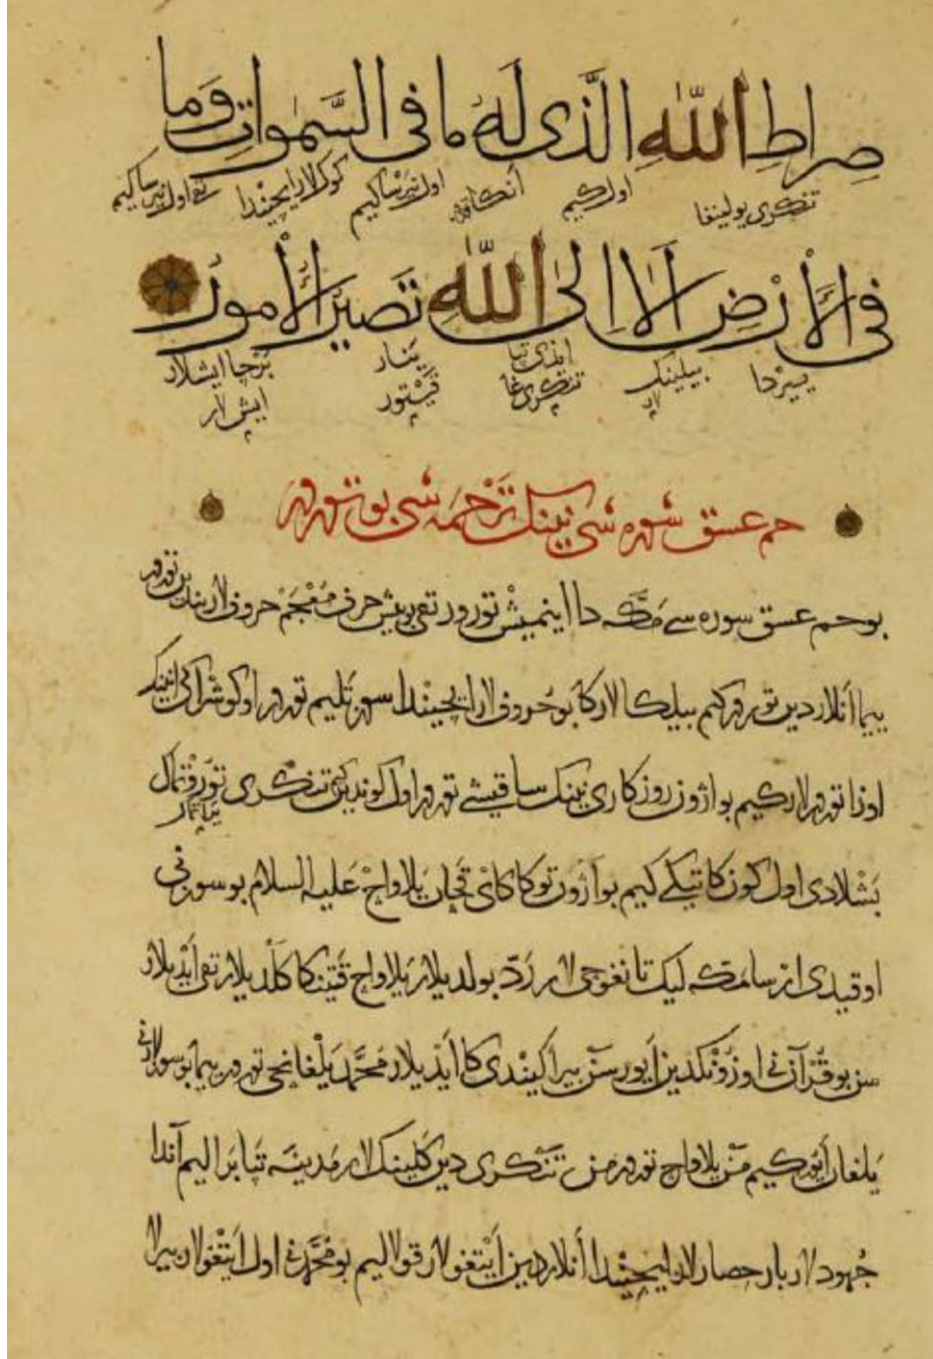 صراط الله الذى له ما فى السموات وما
تنكرى يولينغا اول كيم انكا اول نرساكيم كوكلار ايچيندا تقى اول نرساكيم
فى الأرض ألا إلى الله تصير الأمور
ييردا بيلينك ايذى تپا يانار برچا ايشلار
لار تنكرى غا قيتور ايش لار
حم عسق سوره سى نينك ترجمه سى بو تورور
بو حم عسق سوره سى مكه دا اينميش تورور تقى بو بيش حرف معجم حروف لارينك بين تورور
ييما انلاردين تورور كيم بيلكالاركا بو حروف لار ايچيندا سوز تليم تورور اوكوشراكى انينك
اوزا تورورلار كيم بو اژون روزكارى نينك ساقيشى تورور اول كوندين كيم تنكرى تورتمك
بشلادى اول كون كا تيكى كيم بو اژون توكاكاى قچان يلاواچ عليه السلام بو سوره نى
اوقيدى ارسا مكه ليك تانغوچى لار رد بولديلار يلاواچ قتينكا كلديلار تقى ايديلار
سن بو قرآن نى اوزونكدين ايورسن بير اكيندى كا ايديلار محمد يلغانچى تورور ييما بو سوزلارنى
يلغان ايور كيم من يلاواچ تورورمن تنكرى دين كلينك لار مدينه تپا بارالیم آندا
جهودلار بار حصارلار ايچيندا انلاردين ايتغولار قولاليم بو محمدنى اول ايتغولار بيرلا